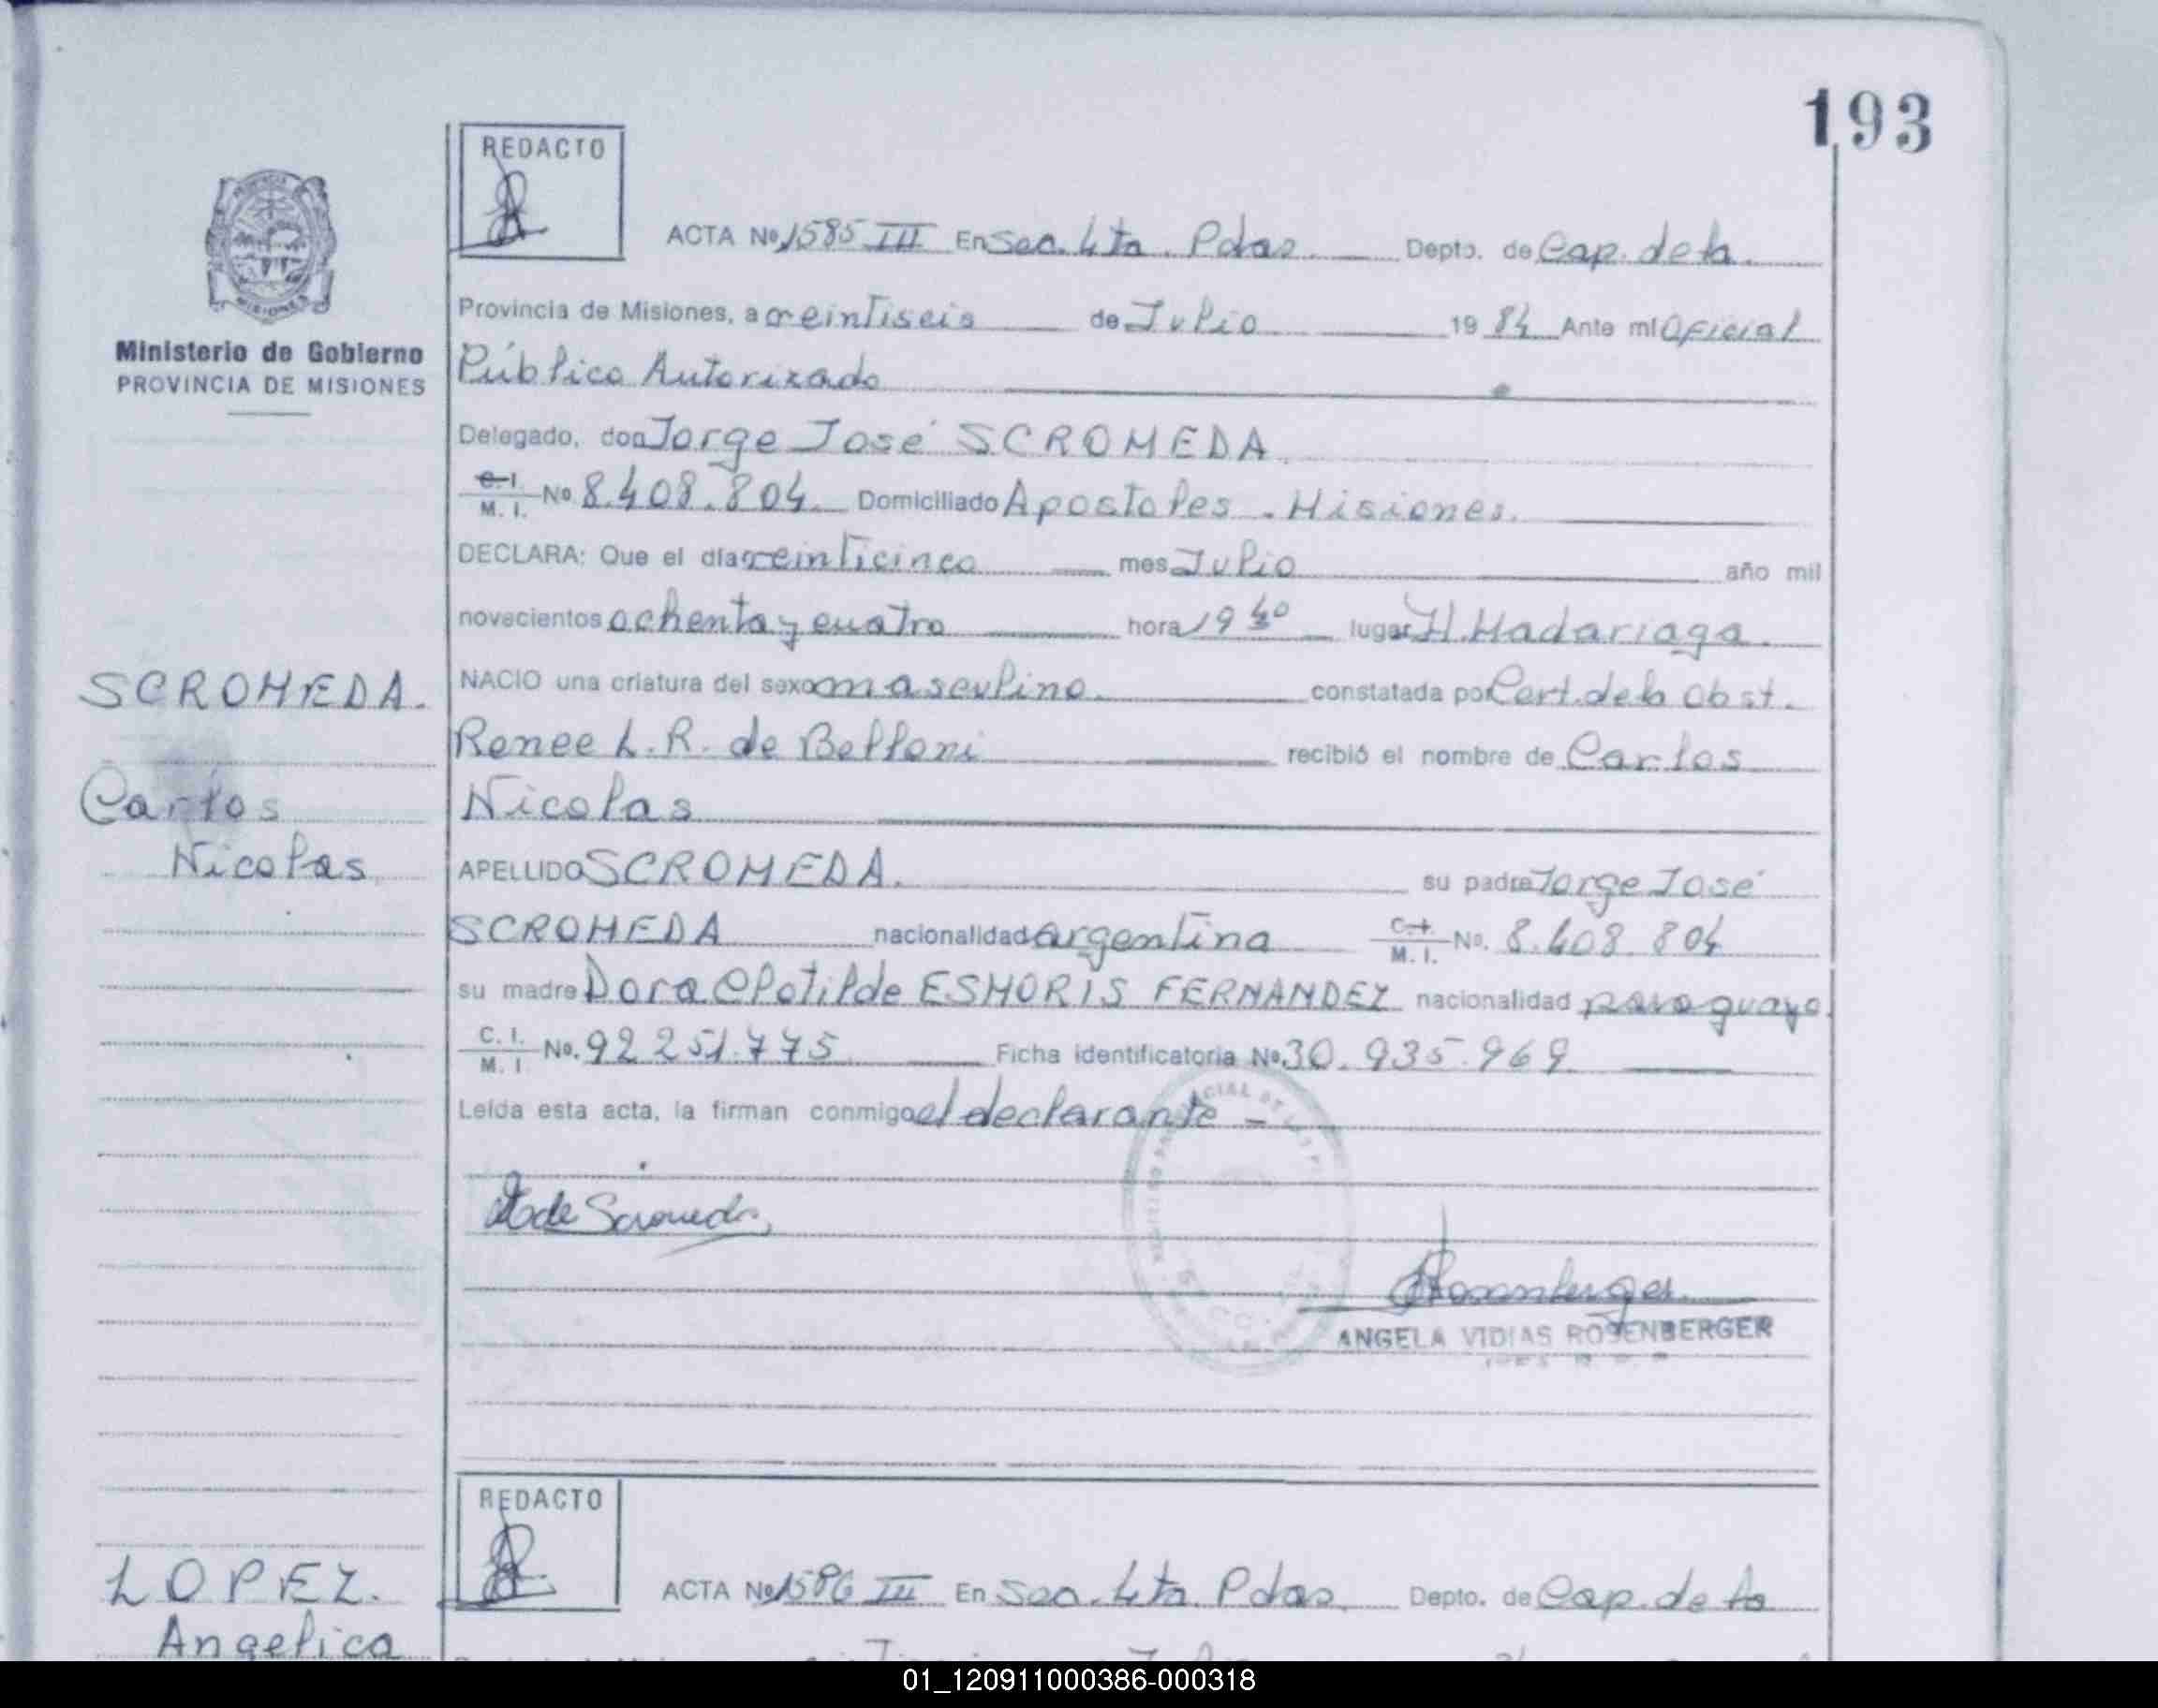 193
REDACTO
ACTA No 1585 III En Sec. 4ta. Pdas. Depto. de Cap. de la
Provincia de Misiones, a veintiseis de Julio 19 84 Ante mi Oficial
Público Autorizado
Delegado, don Jorge José SCROMEDA.
C. I. M. I. No 8.408.804. Domiciliado Apostoles - Misiones.
DECLARA: Que el día veinticinco mes Julio año mil
novecientos ochenta y cuatro hora 19 40 lugar H. Madariaga.
NACIO una criatura del sexo masculino. constatada por Cert. de la Obst.
Renee L. R. de Belloni recibió el nombre de Carlos
Nicolas
APELLIDO SCROMEDA. su padre Jorge José
SCROMEDA nacionalidad argentina C. I. M. I. No. 8.408.804
su madre Dora Clotilde ESMORIS FERNANDEZ nacionalidad paraguaya.
C. I. M. I No. 92 251.775 Ficha identificatoria No. 30.935.969
Leída esta acta, la firman conmigo el declarante -
de Scromeda
Rosenberger
ANGELA VIDIAS ROSENBERGER
Ministerio de Gobierno
PROVINCIA DE MISIONES
MISIONES
SCROMEDA.
Carlos
Nicolas
REDACTO
ACTA No 1586 III En Sec. 4ta. Pdas. Depto. de Cap. de la
LOPEZ.
Angelica
01_120911000386-000318